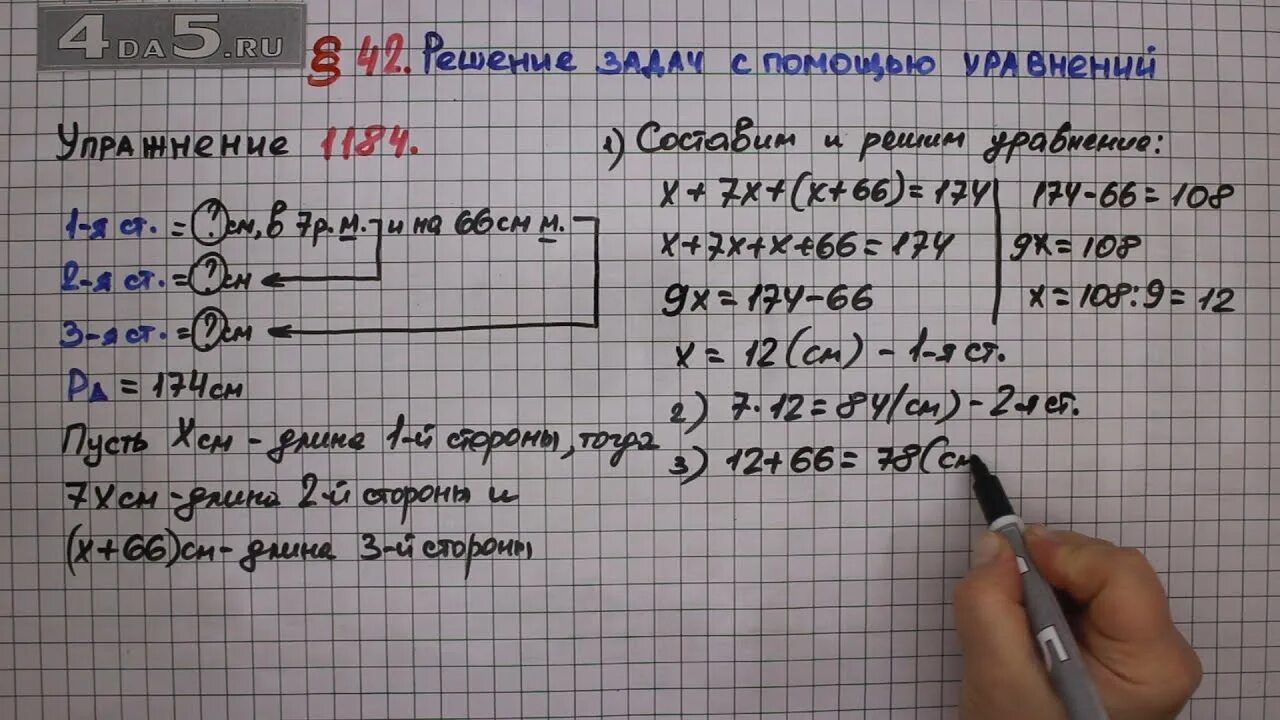 4DA5.RU
§ 42. Решение задач с помощью уравнений
Упражнение 1184.
1-я ст. = ? см, в 7р. м. и на 66 см м.
2-я ст. = ? см
3-я ст. = ? см
PΔ = 174 см
Пусть X см - длина 1-й стороны, тогда
7X см - длина 2-й стороны и
(x+66) см - длина 3-й стороны
1) Составим и решим уравнение:
x + 7x + (x+66) = 174
x + 7x + x + 66 = 174
9x = 174 - 66
174 - 66 = 108
9x = 108
x = 108 : 9 = 12
x = 12 (см) - 1-я ст.
2) 7 · 12 = 84 (см) - 2-я ст.
3) 12 + 66 = 78 (см